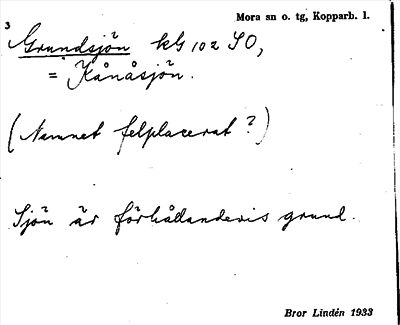 3
Mora sn o. tg, Kopparb. l.
Grundsjön kbl 102 SO,
= Kånåsjön.
(Namnet felplacerat?)
Sjön är förhållandevis grund.
Bror Lindén 1933